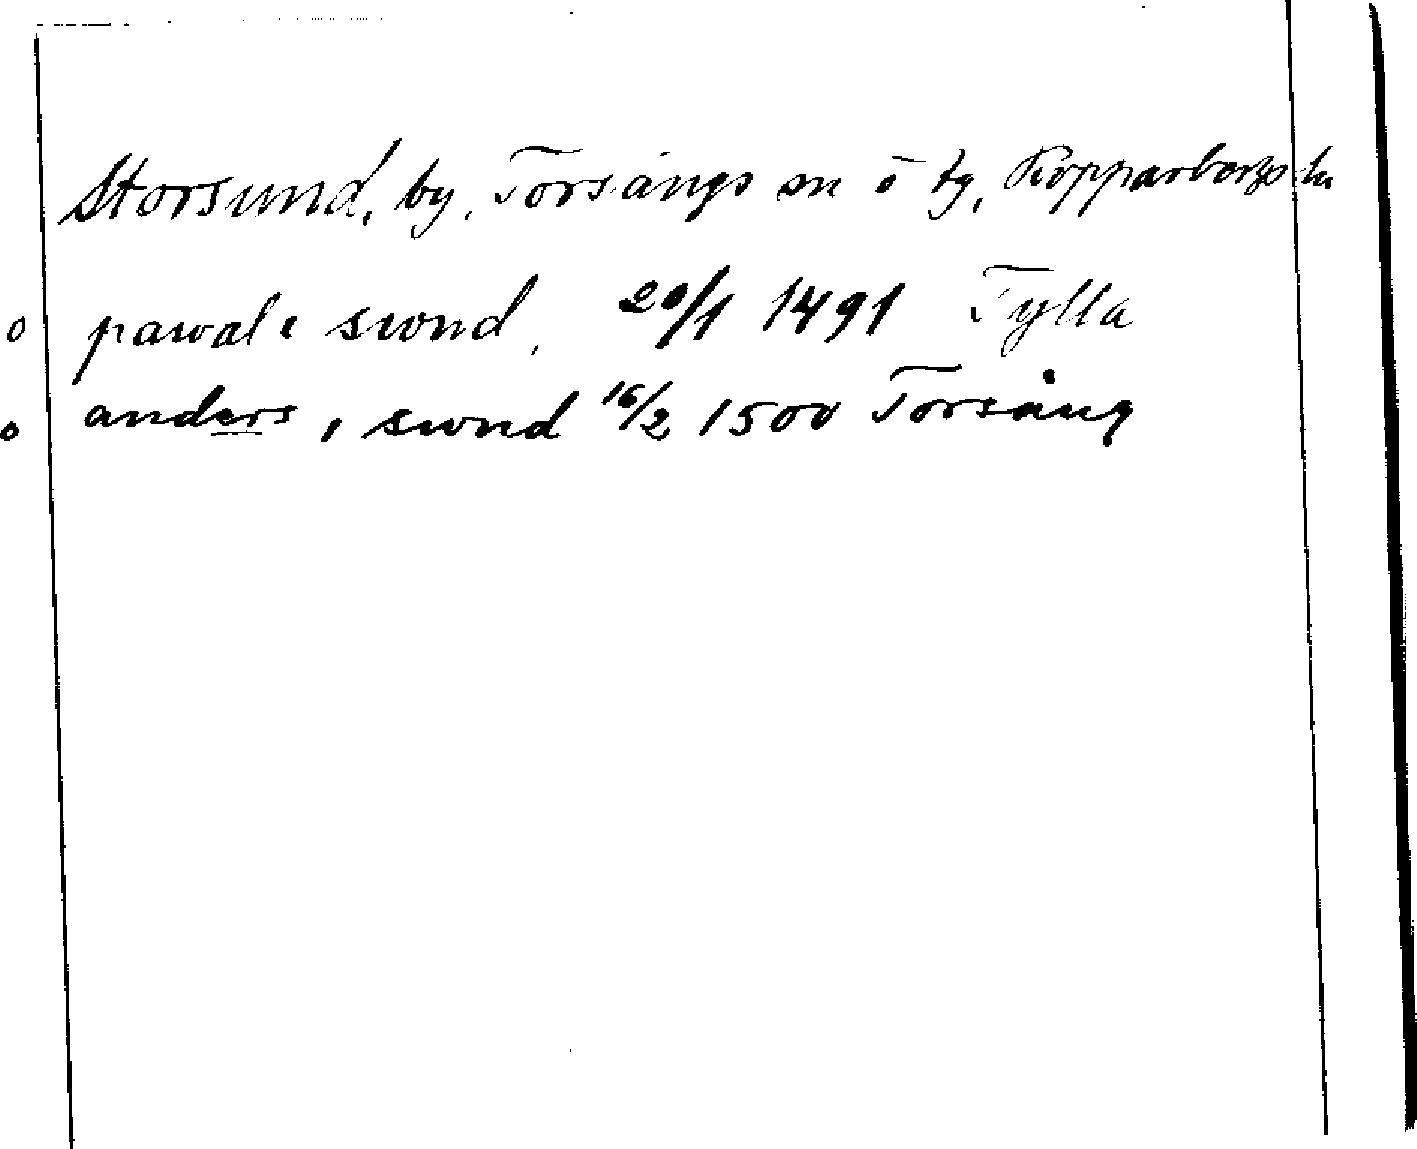 Storsund, by, Torsångs sn o tg, Kopparbergs län
o pawal i swnd, 20/1 1491 Tylla
o anders i swnd 16/2 1500 Torsång